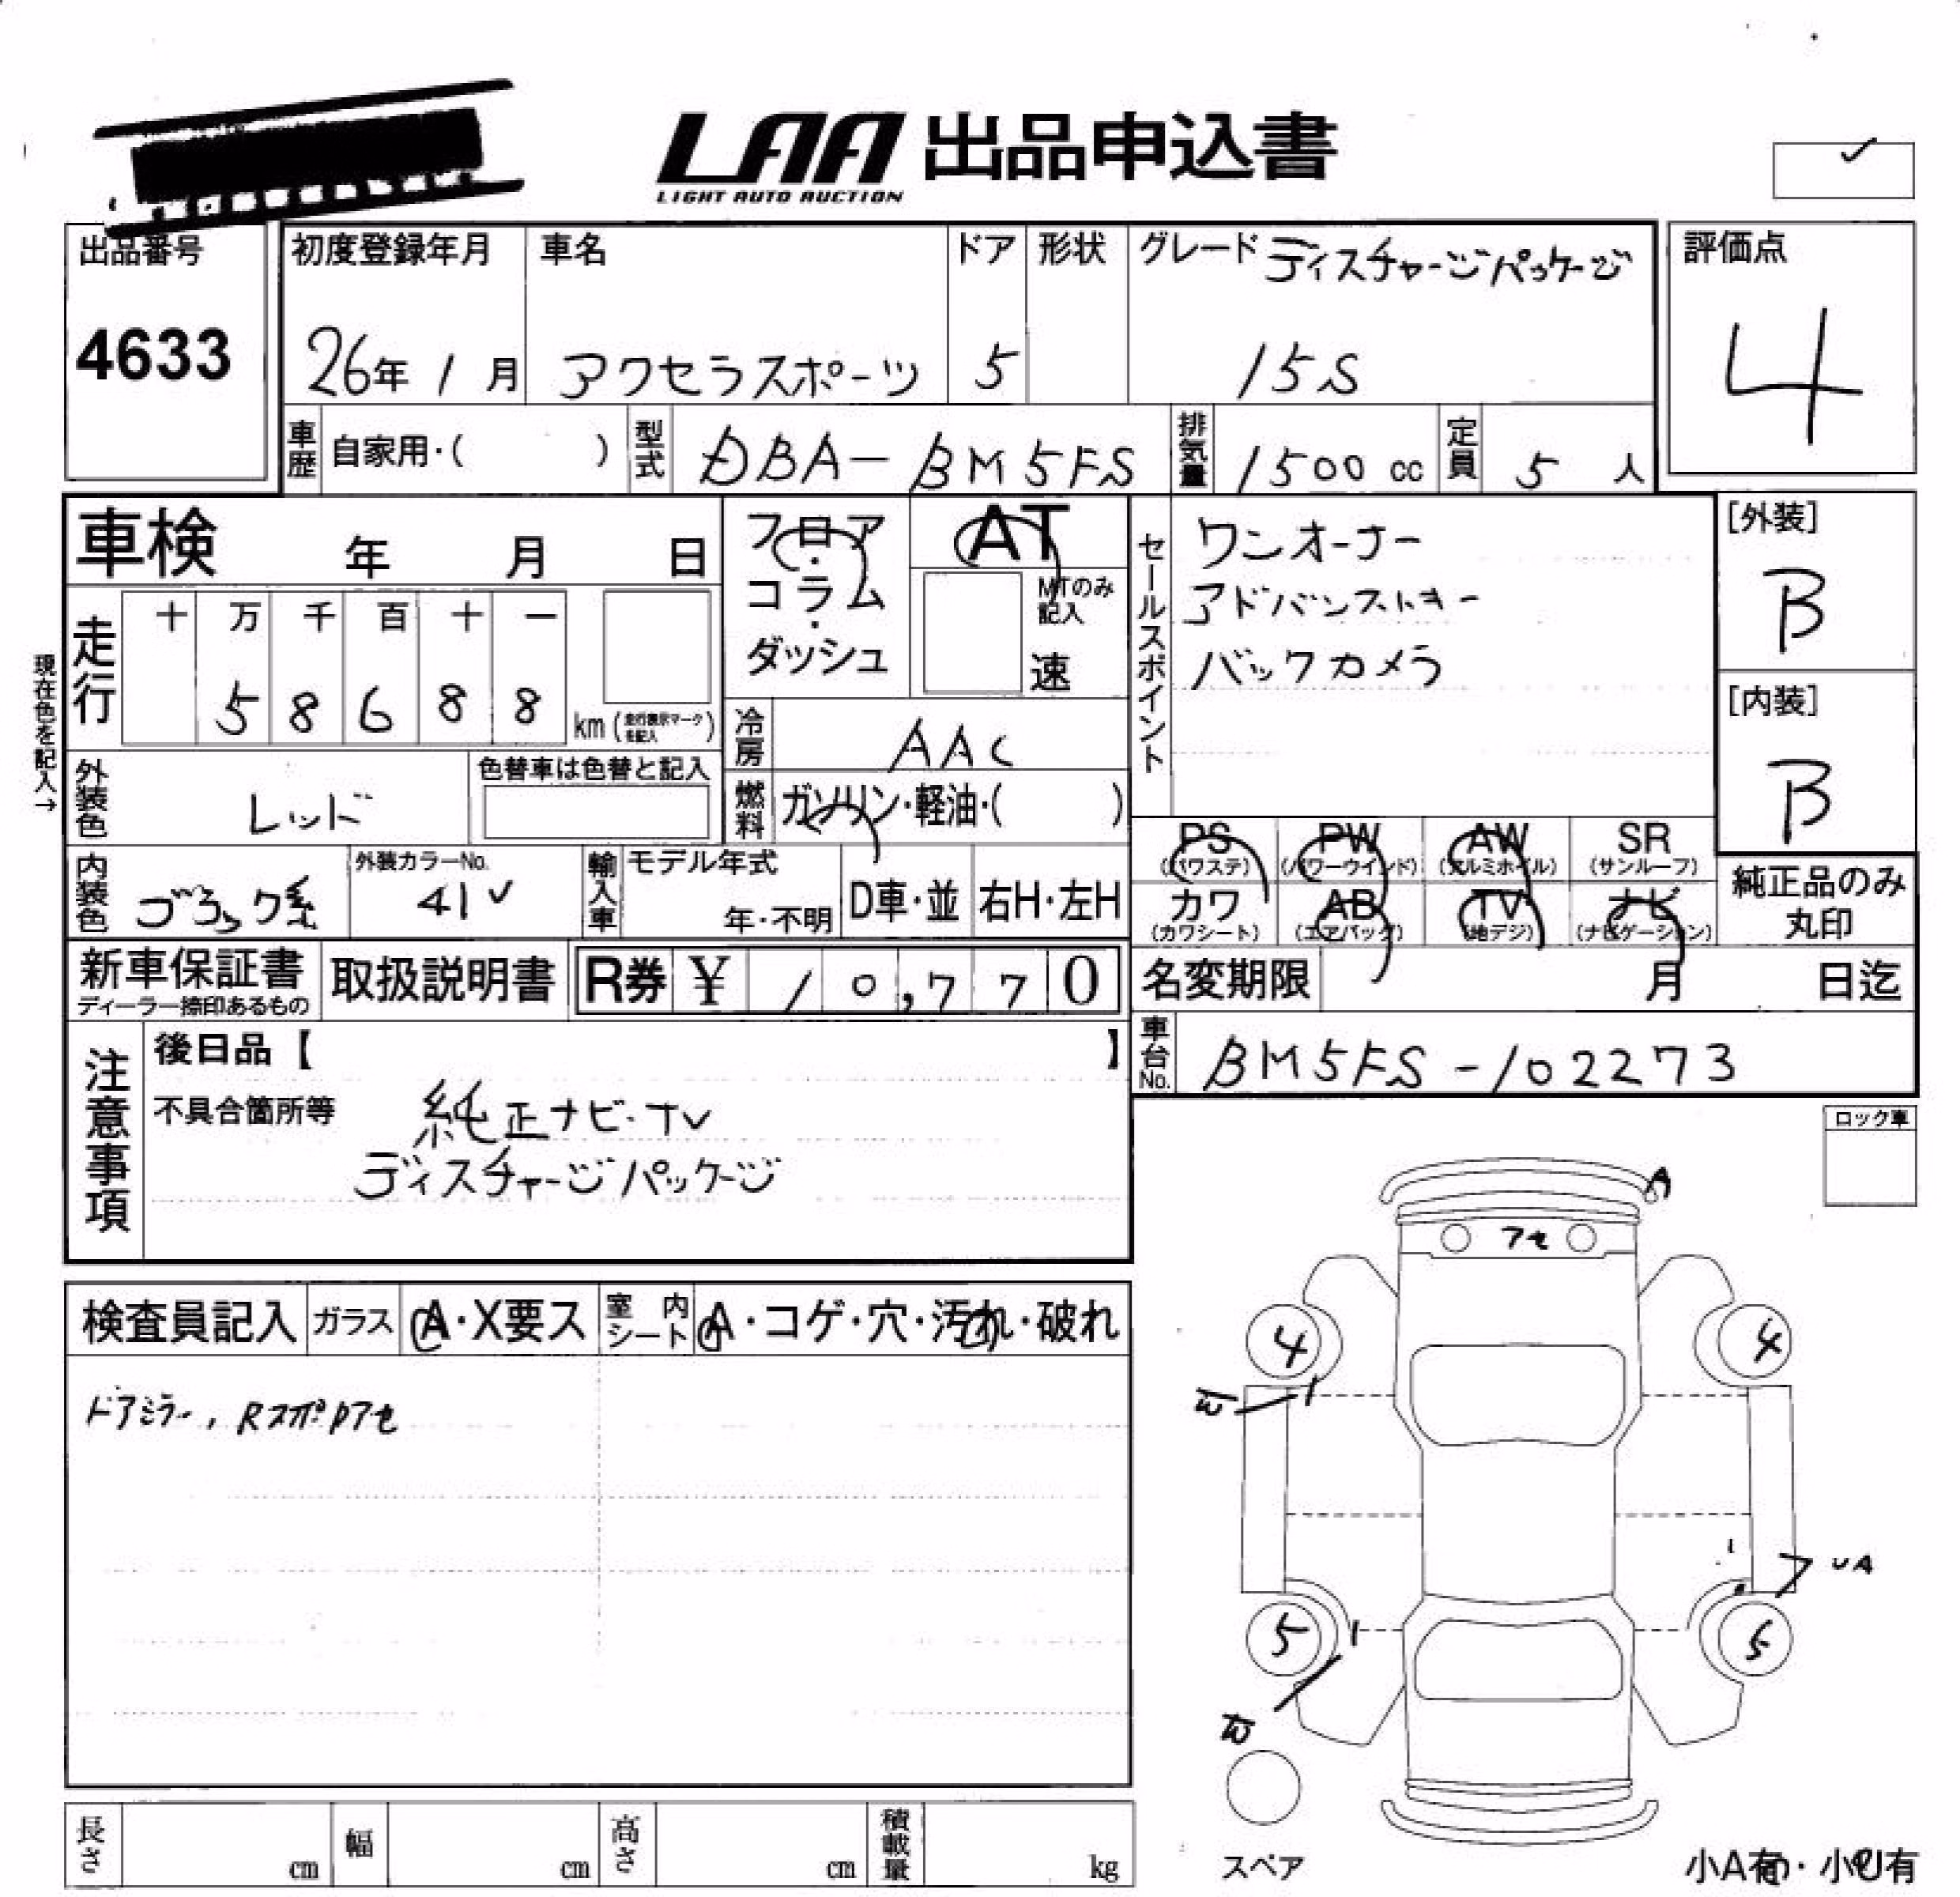 LAA 出品申込書
LIGHT AUTO AUCTION
出品番号
4633
初度登録年月
26年 1月
車名
アクセラスポーツ
ドア
5
形状
グレード ディスチャージパッケージ
15S
評価点
4
車歴 自家用・( )
型式 DBA-BM5FS
排気量 1500 cc
定員 5 人
車検 年 月 日
フロア・コラム・ダッシュ
AT
MTのみ記入
速
セールスポイント
ワンオーナー
アドバンストキー
バックカメラ
[外装]
B
[内装]
B
現在色を記入→
走行
十 万 千 百 十 一
5 8 6 8 8
km (走行表示マークを記入)
冷房 AAC
外装色 レッド
色替車は色替と記入
燃料 ガソリン・軽油・( )
内装色 ブラック系
外装カラーNo.
41V
輸入車 モデル年式
年・不明
D車・並
右H・左H
PS (パワステ)
PW (パワーウインド)
AW (アルミホイル)
SR (サンルーフ)
カワ (カワシート)
AB (エアバッグ)
TV (地デジ)
ナビ (ナビゲーション)
純正品のみ
丸印
新車保証書
ディーラー捺印あるもの
取扱説明書
R券 ¥ 10,770
名変期限 月 日迄
車台No. BM5FS-102273
注意事項
後日品【 】
不具合箇所等
純正ナビ・TV
ディスチャージパッケージ
ロック車
検査員記入
ガラス A・X要ス
室内シート A・コゲ・穴・汚れ・破れ
ドアミラー, RスポPアセ
A
アセ
4
4
W
1
UA
5
1
5
W
スペア
小A有・小U有
長さ cm
幅 cm
高さ cm
積載量 kg